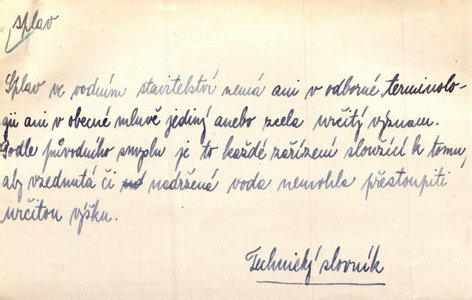 splav
Splav ve vodním stavitelství nemá ani v odborné terminolo-
gii ani v obecné mluvě jediný anebo zcela určitý význam.
Podle původního smyslu je to každé zařízení sloužící k tomu,
aby vzedmutá či nadržená voda nemohla přestoupiti
určitou výšku.
Technický slovník